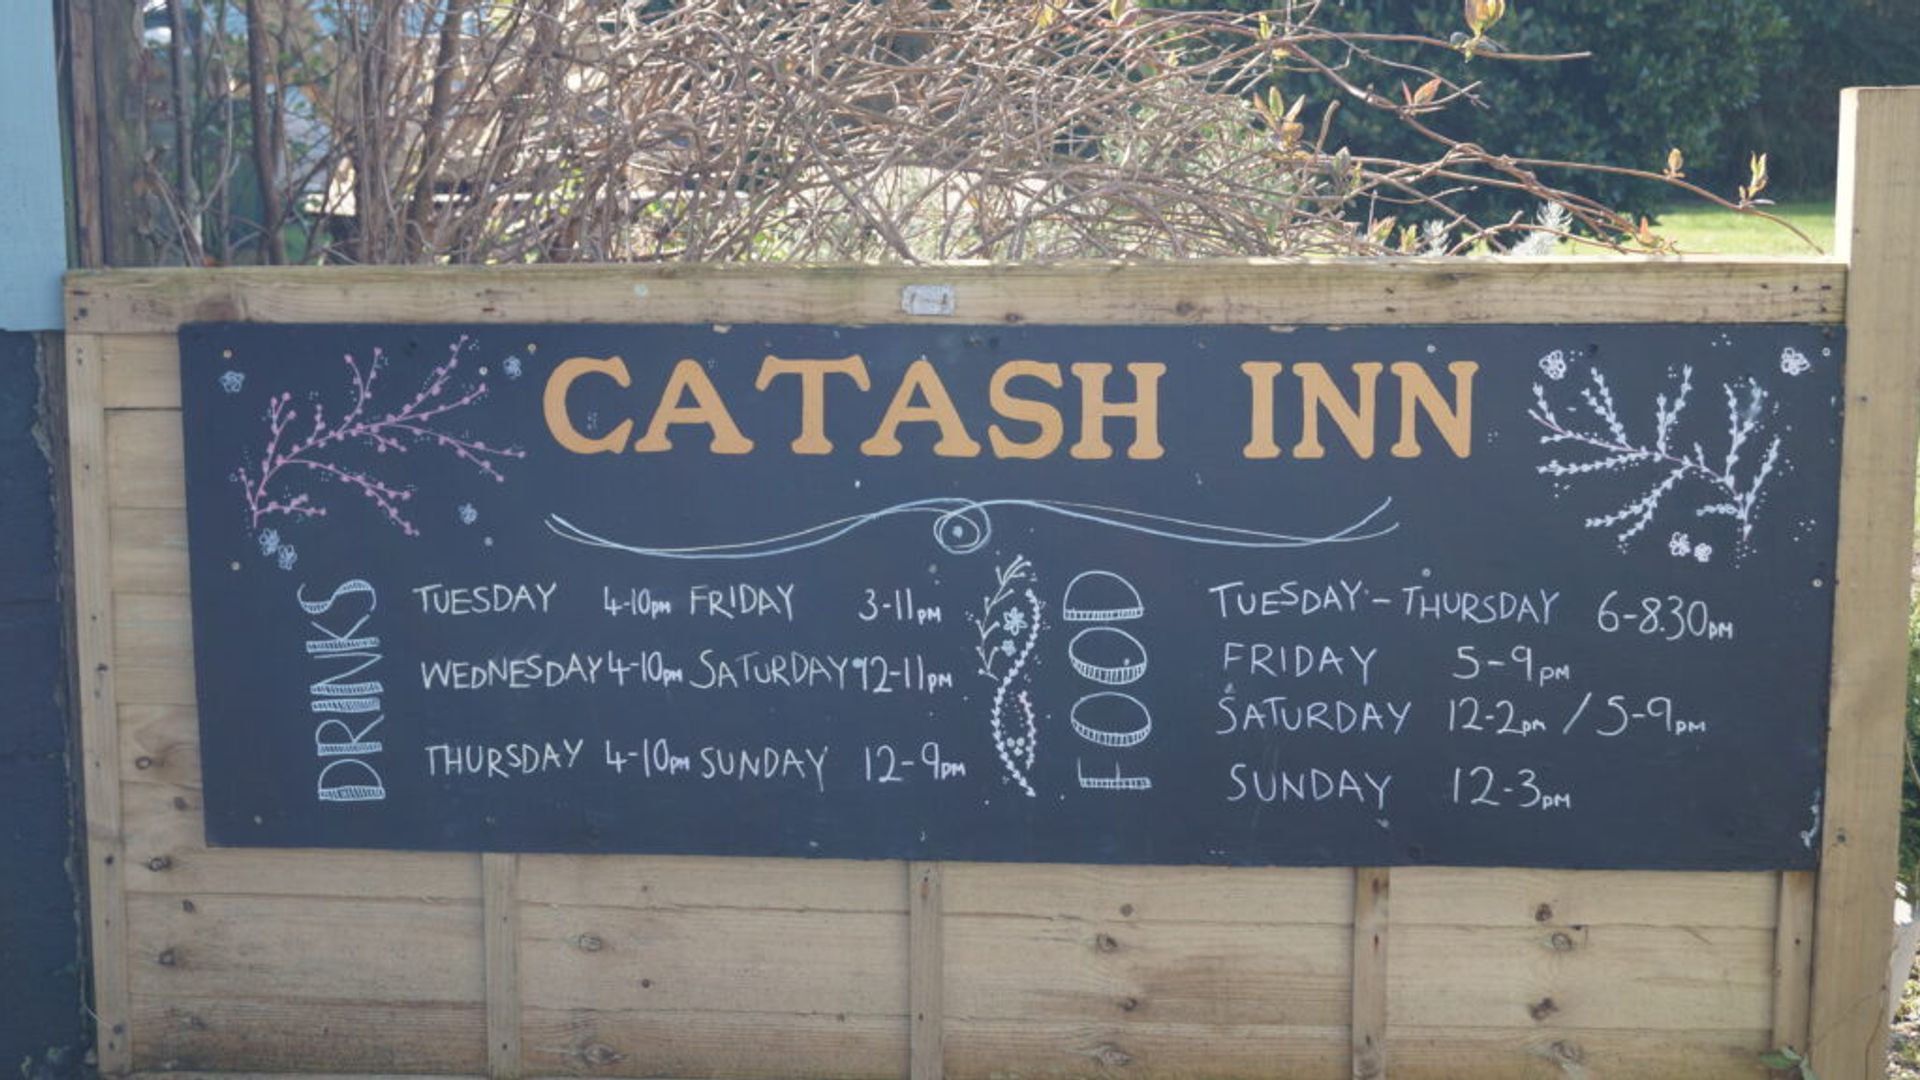 CATASH INN
DRINKS
TUESDAY 4-10pm FRIDAY 3-11pm
WEDNESDAY 4-10pm SATURDAY 12-11pm
THURSDAY 4-10pm SUNDAY 12-9pm
FOOD
TUESDAY - THURSDAY 6-8.30pm
FRIDAY 5-9pm
SATURDAY 12-2pm / 5-9pm
SUNDAY 12-3pm